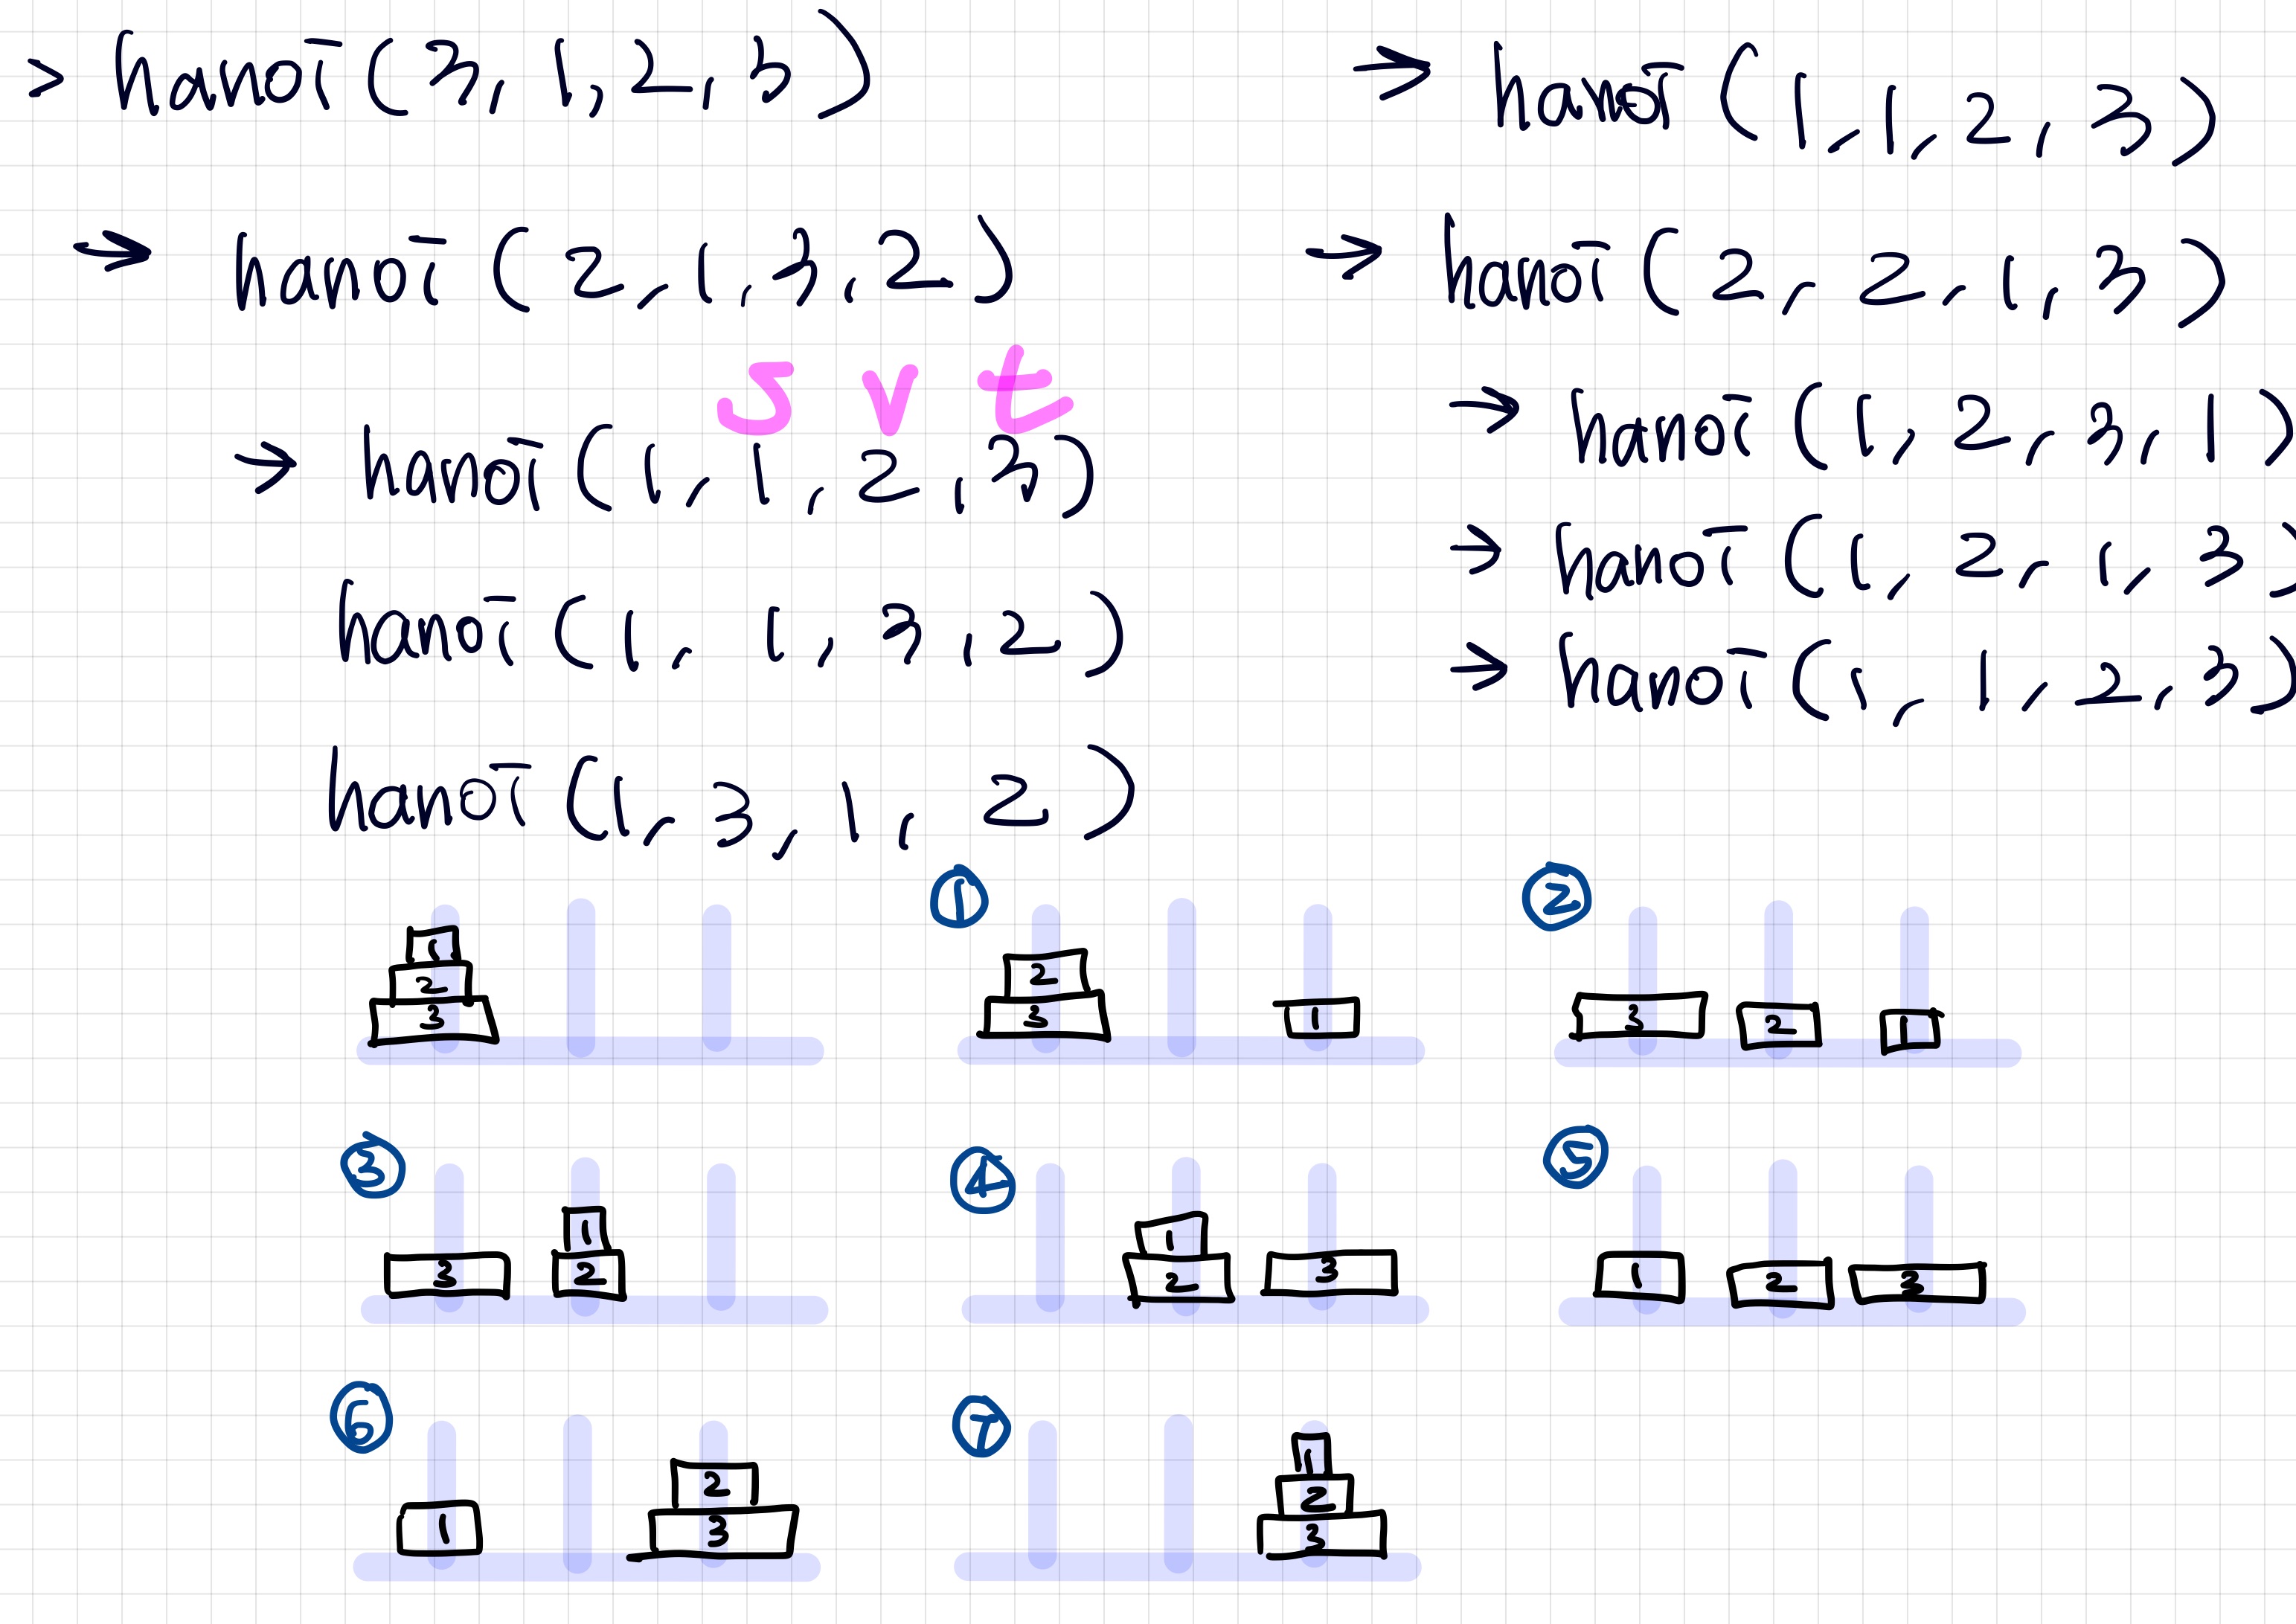 > hanoi (3, 1, 2, 3)
→ hanoi (2, 1, 3, 2)
s v t
→ hanoi (1, 1, 2, 3)
hanoi (1, 1, 3, 2)
hanoi (1, 3, 1, 2)
→ hanoi (1, 1, 2, 3)
→ hanoi (2, 2, 1, 3)
→ hanoi (1, 2, 3, 1)
→ hanoi (1, 2, 1, 3)
→ hanoi (1, 1, 2, 3)
1
2
3
①
2
3 1
②
3 2 1
③
1
3 2
④
1
2 3
⑤
1 2 3
⑥
2
1 3
⑦
1
2
3